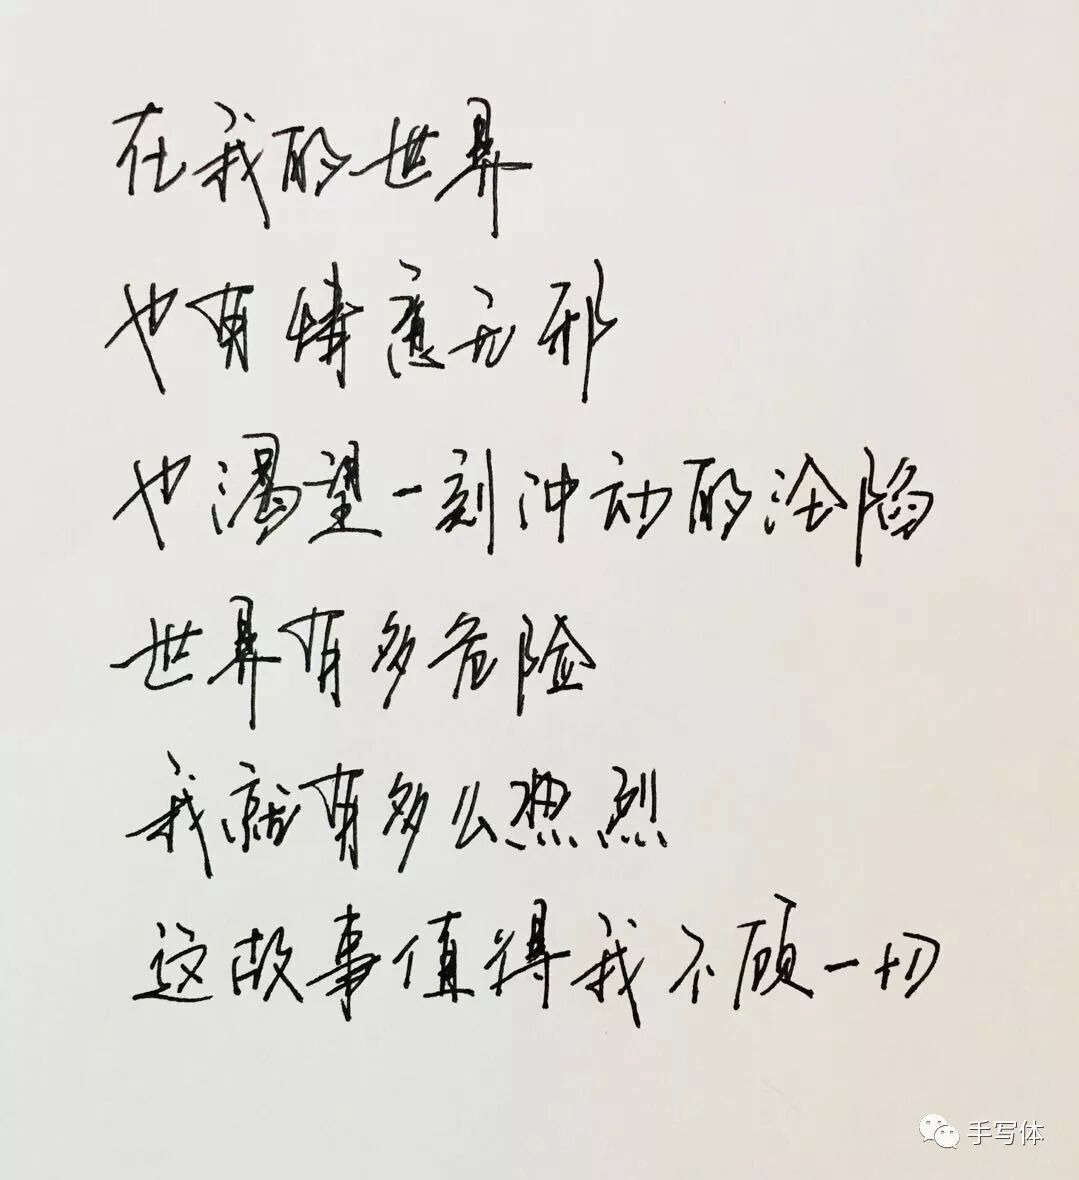 在我的世界
也有情意无邪
也渴望一刻冲动的沦陷
世界有多危险
我就有多么热烈
这故事值得我不顾一切
手写体